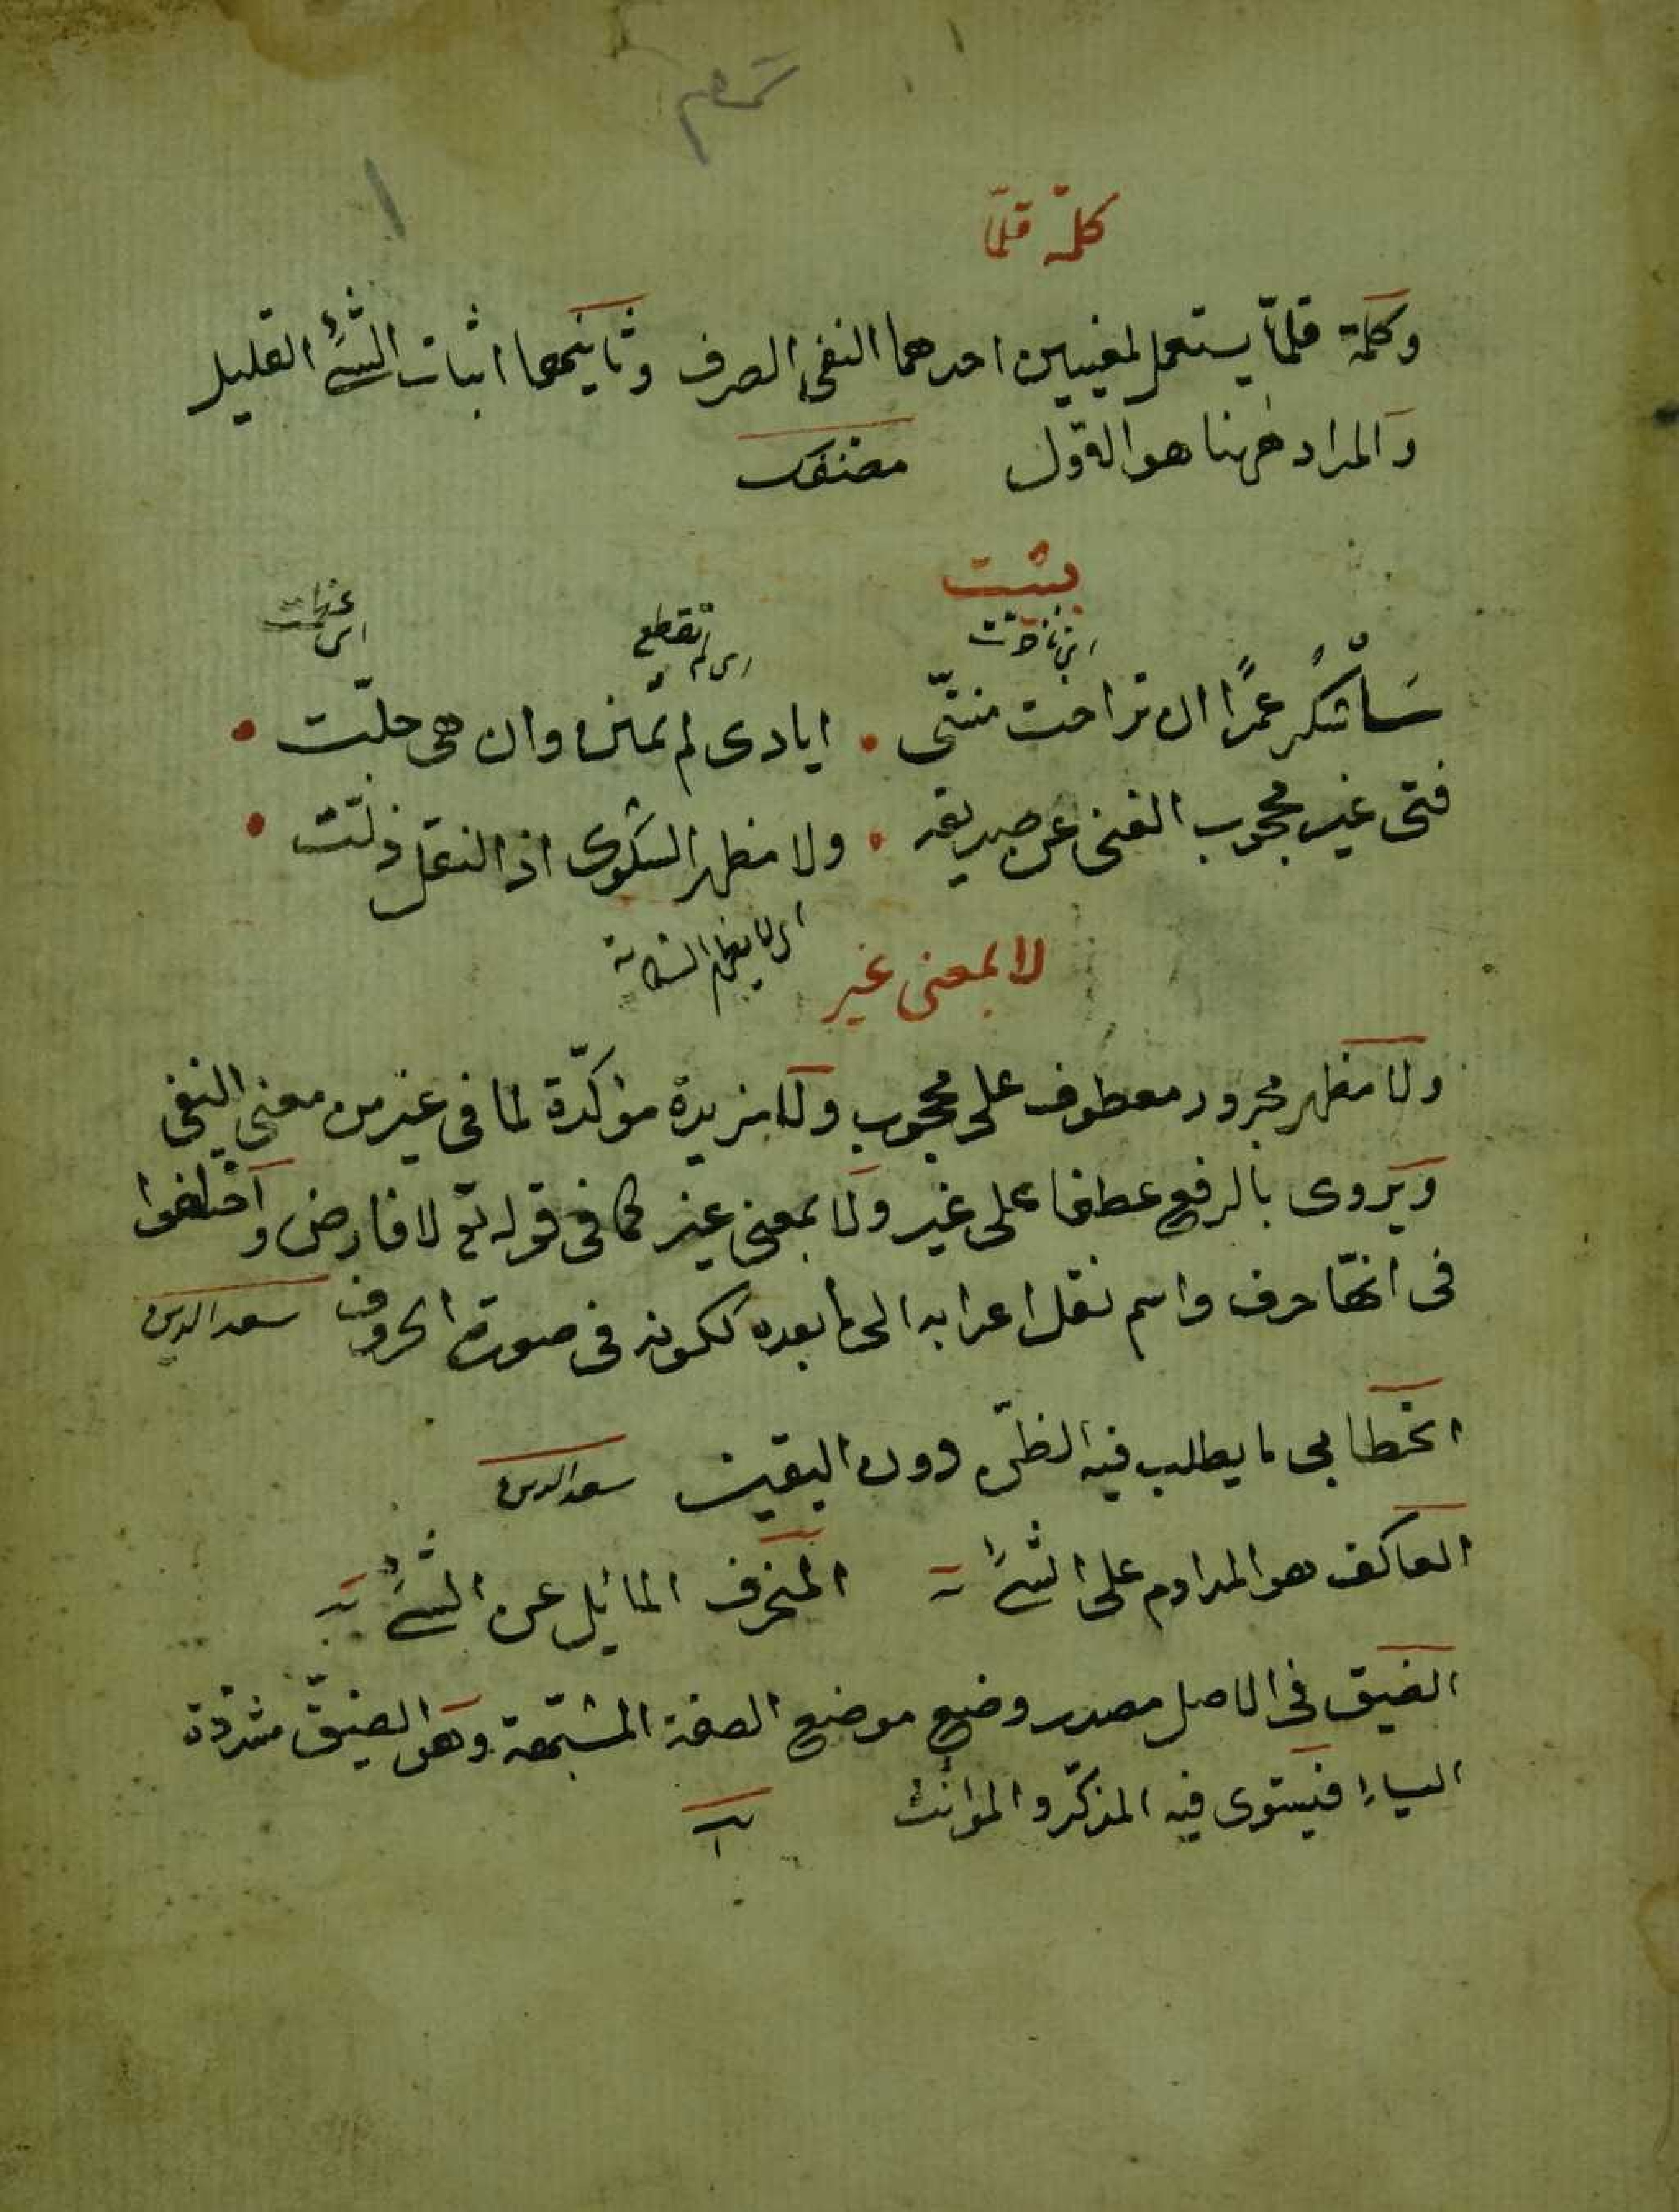 كلمة قلما
وكلمة قلمّا يستعمل لمعنيين احدهما النفى الصرف وثانيهما اثبات الشئ القليل
والمراد ههنا هو الاول مصنفك
بيت
اى تأخرت
اى لم تقطع
اى
سَأشْكُر عمرًا ان تراخت منيتّى . ايادى لم تمنن وان هى جلّت .
فتى غير محجوب الغنى عن صديقه . ولا مظهر الشكوى اذ النعل زلّت .
لا بمعنى غير
ولا مظهر مجرور معطوف على محجوب ولا مزيدة مؤكدّة لما فى غير من معنى النفى
ويروى بالرفع عطفا على غير ولا بمعنى غير كما فى قوله تع لا فارض واختلفوا
فى انهّا حرف واسم نقل اعرابه الى ما بعده لكونه فى صورة الحروف سعد الدين
الخطابى ما يطلب فيه الظنّ دون اليقين سعد الدين
العاكف هو المداوم على الشئ المنحرف المائل عن الشئ
الضيق فى الاصل مصدر وضع موضع الصفة المشبّهة وهو الضيّق مشدّدة
الياء فيستوى فيه المذكّر والمؤنث